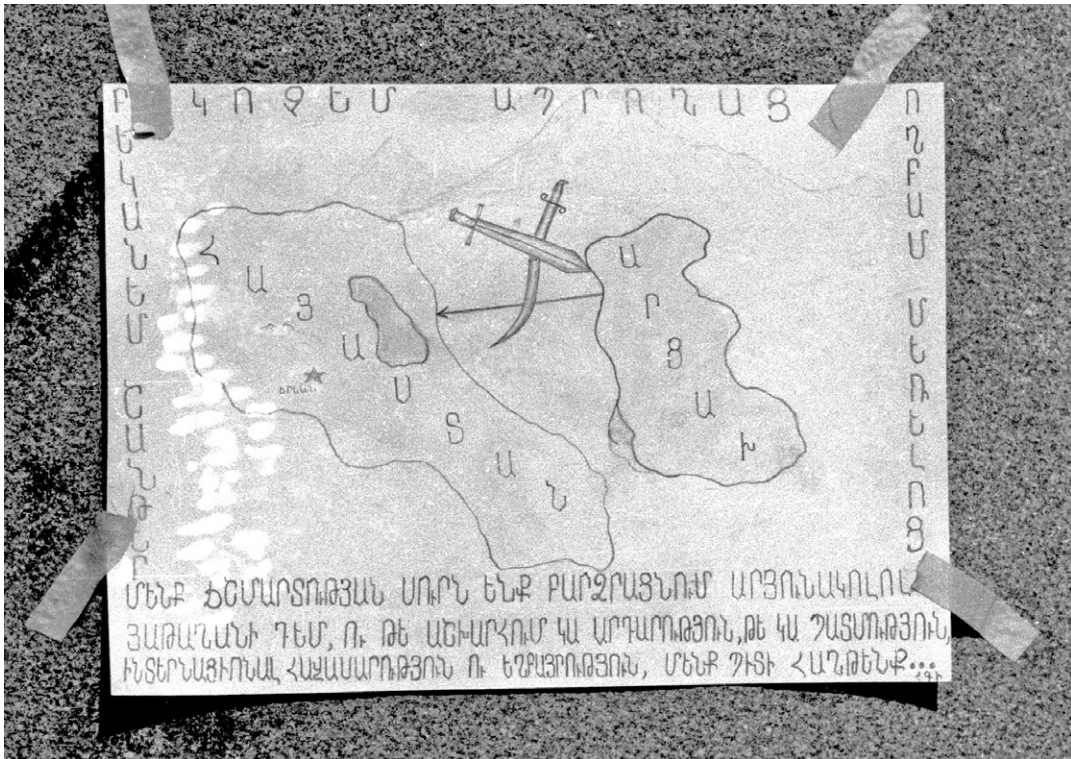 ԿՈՉԵՄ ԱՊՐՈՂԱՑ
ՈՂԲԱՄ ՄԵՌԵԼՈՑ
ԲԵԿԱՆԵՄ ՇԱՆԹԵՐ
ՀԱՅԱՍՏԱՆ
ԱՐՑԱԽ
ՄԵՆՔ ՃՇՄԱՐՏՈՒԹՅԱՆ ՍՈՒՐՆ ԵՆՔ ԲԱՐՁՐԱՑՆՈՒՄ ԱՐՅՈՒՆԱԿՈԼՈԼ
ՅԱԹԱՂԱՆԻ ԴԵՄ, ՈՒ ԹԵ ԱՇԽԱՐՀՈՒՄ ԿԱ ԱՐԴԱՐՈՒԹՅՈՒՆ, ԹԵ ԿԱ ՊԱՏՄՈՒԹՅՈՒՆ,
ԻՆՏԵՐՆԱՑԻՈՆԱԼ ՀԱՎԱՍԱՐՈՒԹՅՈՒՆ ՈՒ ԵՂԲԱՅՐՈՒԹՅՈՒՆ, ՄԵՆՔ ՊԻՏԻ ՀԱՂԹԵՆՔ...